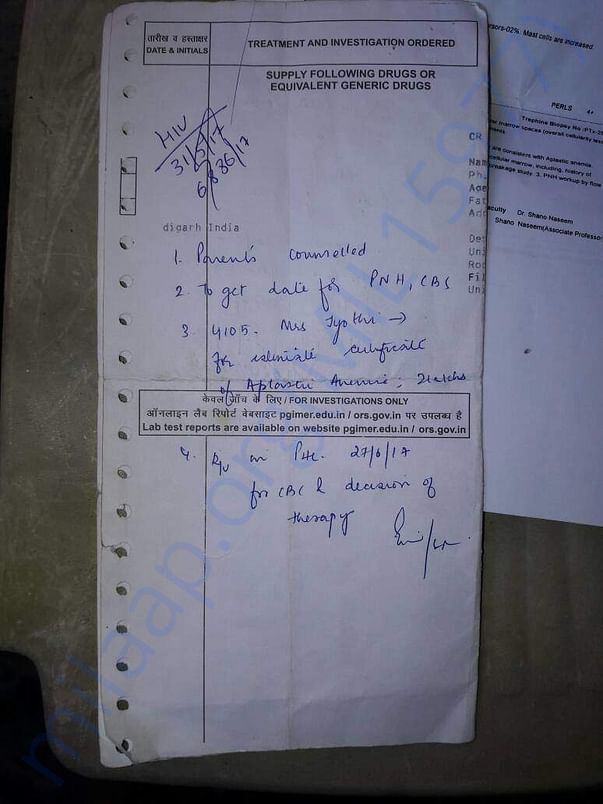 तारीख व हस्ताक्षर
DATE & INITIALS
TREATMENT AND INVESTIGATION ORDERED
SUPPLY FOLLOWING DRUGS OR
EQUIVALENT GENERIC DRUGS
HIV
31/5/17
6886/17
digarh India
1. Parents counselled
2. To get date for PNH, CBS
3. 4105. Mrs Jyothi →
for estimate certificate
of Aplastic Anemia;
केवल जाँच के लिए / FOR INVESTIGATIONS ONLY
ऑनलाइन लैब रिपोर्ट वेबसाइट pgimer.edu.in / ors.gov.in पर उपलब्ध है
Lab test reports are available on website pgimer.edu.in / ors.gov.in
4. R/v in PHC 27/6/17
for CBC & decision of
therapy
CR
Nam
Ph.
Age
Fat
Add
Uni
Roo
Fil
Uni
sors-02%. Mast cells are increased
PERLS 4+
Trephine Biopsy No :PTx-26
marrow spaces (overall cellularity
are consistent with Aplastic anemia.
cellular marrow, including, history of
breakage study. 3. PNH workup by flow
aculty Dr. Shano Naseem
Shano Naseem(Associate Professor
milaap.org